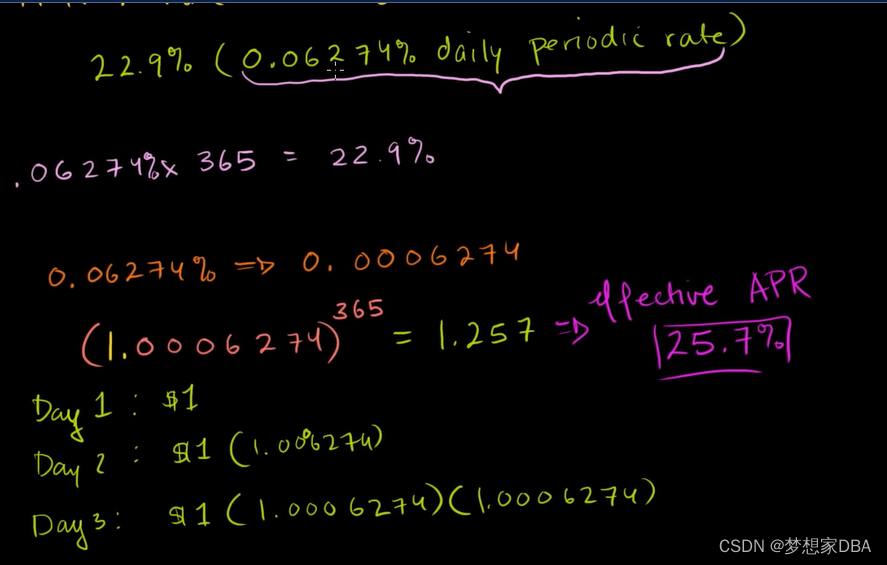 22.9% (0.06274% daily periodic rate)
.06274% x 365 = 22.9%
0.06274% => 0.0006274
(1.0006274)^365 = 1.257 => effective APR
25.7%
Day 1 : $1
Day 2 : $1 (1.0006274)
Day 3 : $1 (1.0006274)(1.0006274)
CSDN @梦想家DBA